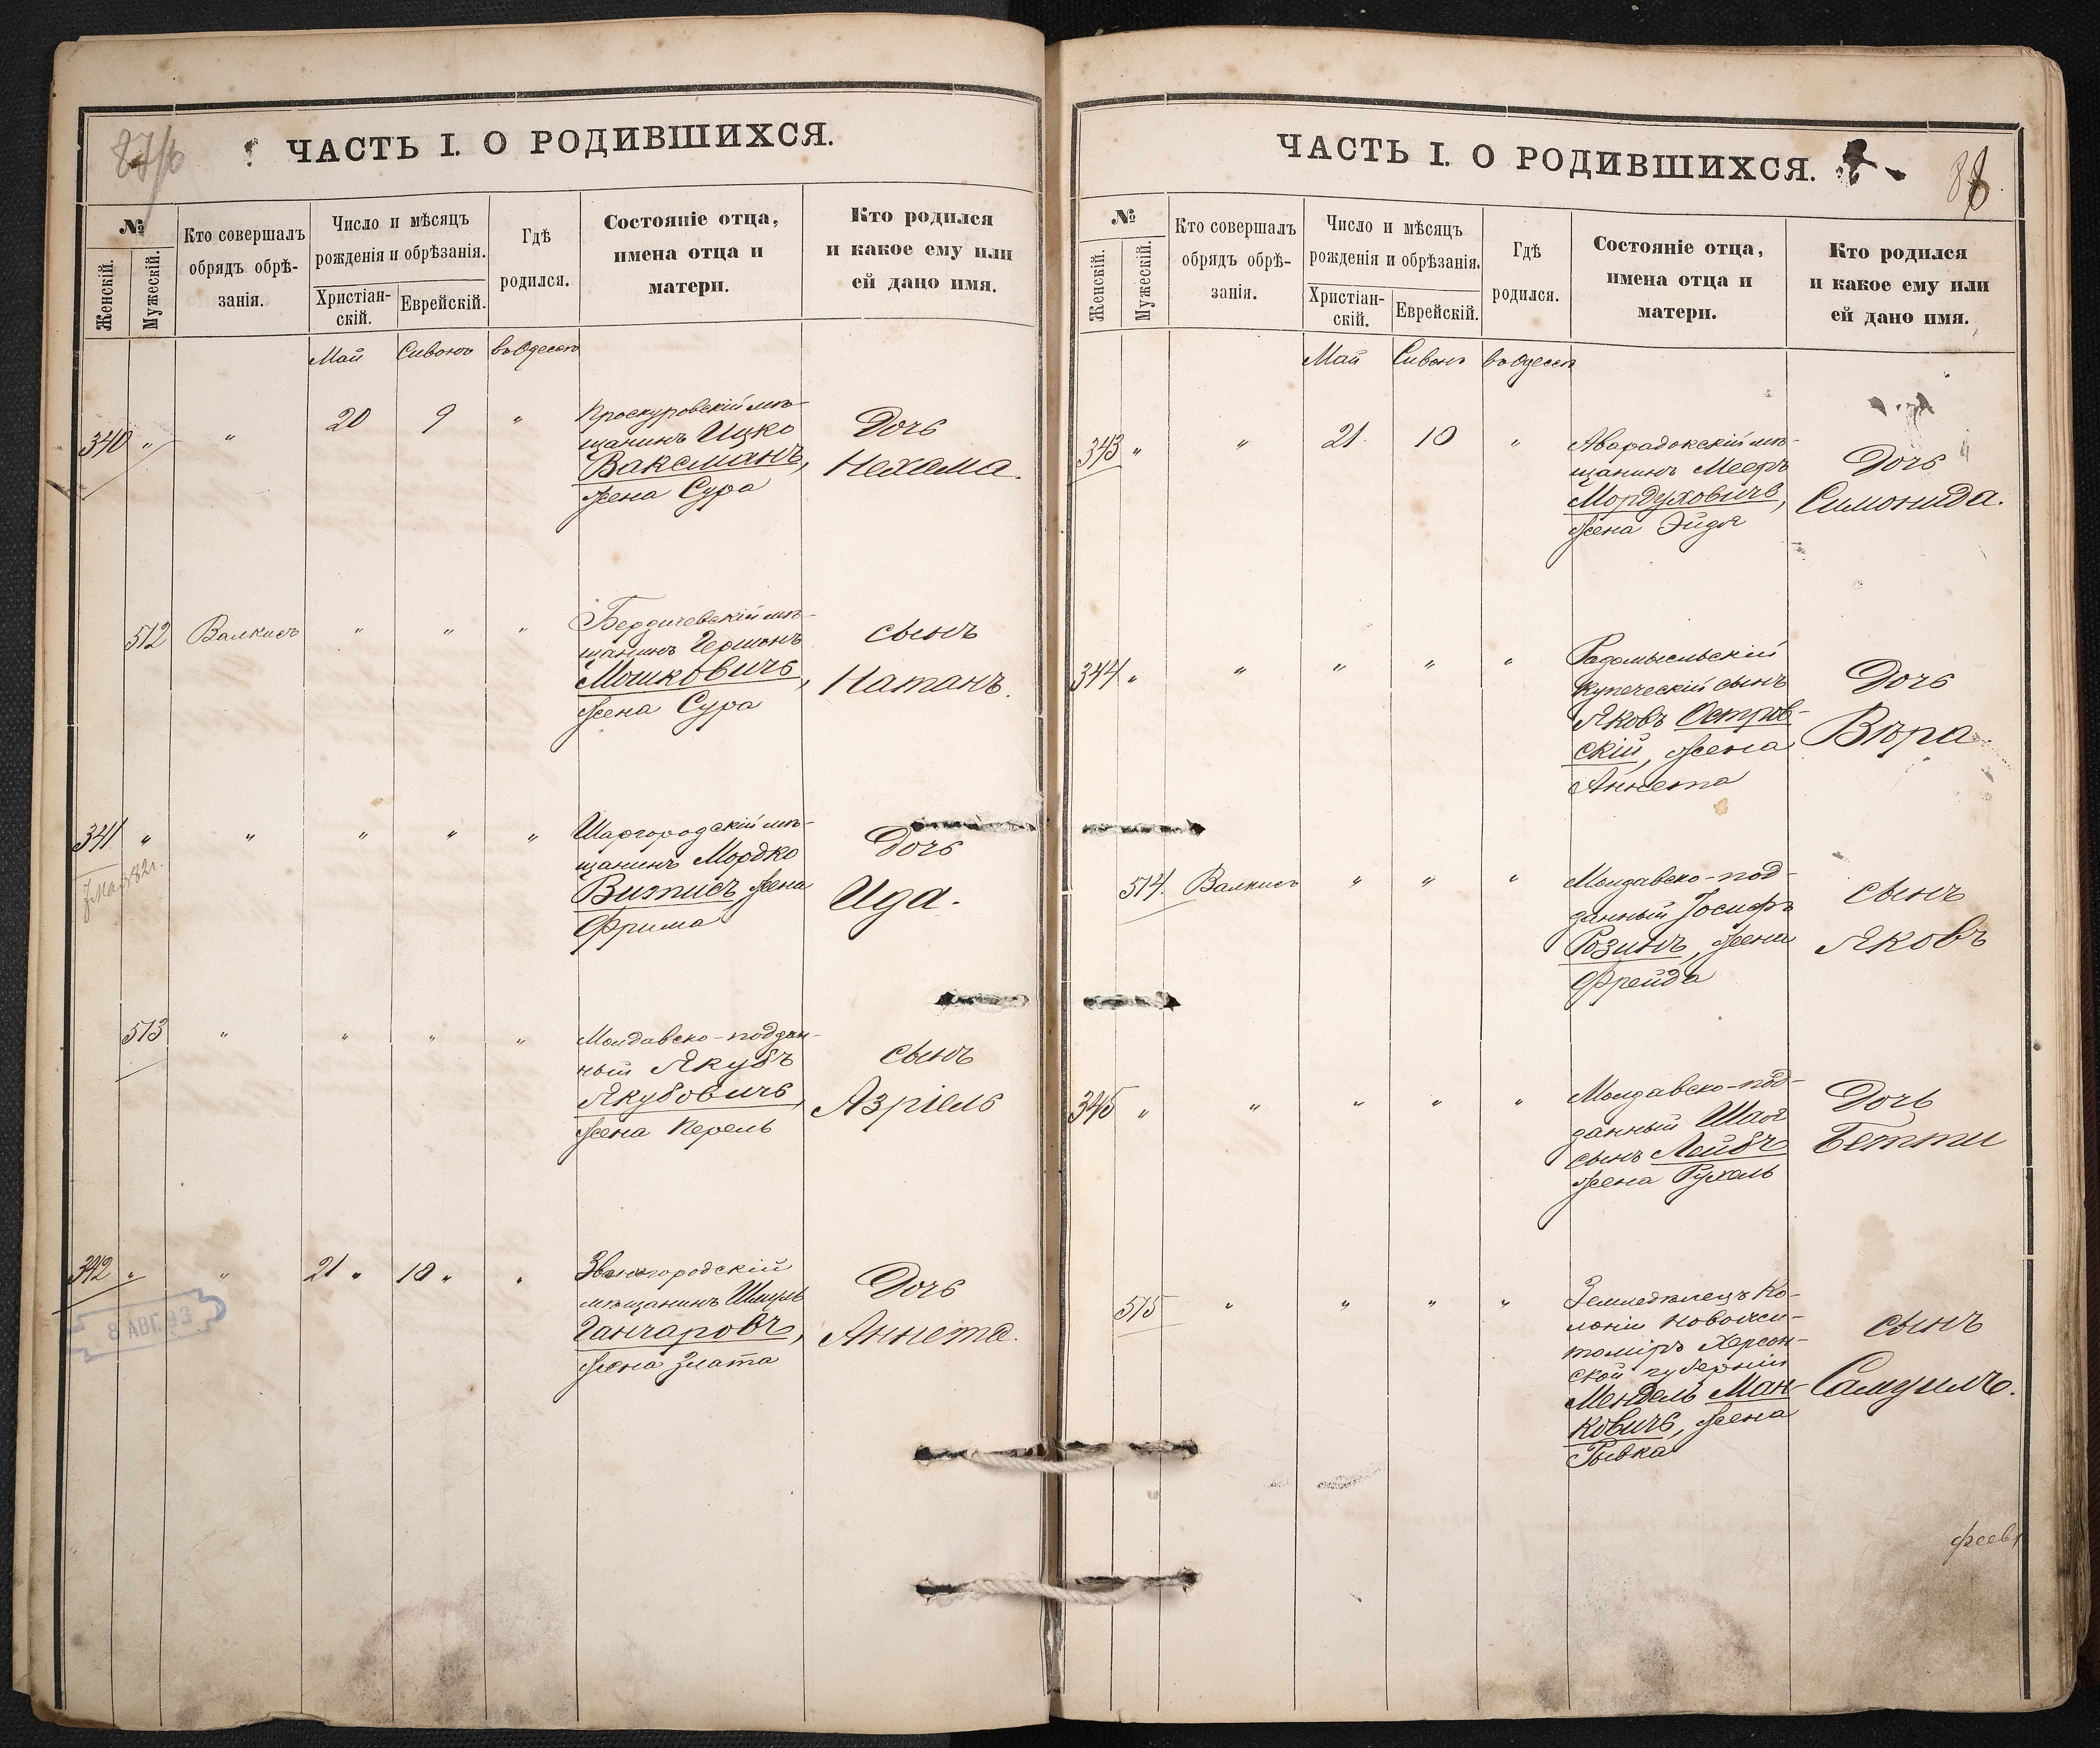 ЧАСТЬ I. О РОДИВШИХСЯ.
№
Женскій.
Мужескій.
Кто совершалъ
обрядъ обрѣ-
занія.
Число и мѣсяцъ
рожденія и обрѣзанія.
Христіан-
скій.
Еврейскій.
Гдѣ
родился.
Состояніе отца,
имена отца и
матери.
Кто родился
и какое ему или
ей дано имя.
Май Сивонъ въ Одессѣ
340 " " 20 9 "
Проскуровскій мѣ-
щанинъ Ицко
Ваксманъ,
жена Сура
Дочь
Нехама.
512 Валкисъ " " "
Бердичевскій мѣ-
щанинъ Гершонъ
Мошковичъ,
жена Сура
сынъ
Натанъ.
341 " " " " "
Шаргородскій мѣ-
щанинъ Мордко
Витисъ, жена
Фрима
Дочь
Ида.
513 " " " "
Молдавско-поддан-
ный Якубъ
Якубовичъ,
жена Перель
сынъ
Азріель
342 " " 21 " 10 " "
Звенигородскій
мѣщанинъ Шмуль
Ганчаровъ,
жена Злата
Дочь
Аннета.
8 АВГ. 93
ЧАСТЬ I. О РОДИВШИХСЯ.
№
Женскій.
Мужескій.
Кто совершалъ
обрядъ обрѣ-
занія.
Число и мѣсяцъ
рожденія и обрѣзанія.
Христіан-
скій.
Еврейскій.
Гдѣ
родился.
Состояніе отца,
имена отца и
матери.
Кто родился
и какое ему или
ей дано имя.
Май Сивонъ въ Одессѣ
343 " " 21 10 "
мѣ-
щанинъ Мееръ
Мордуховичъ,
жена Эйдя
Дочь
Симонида.
344 " " " " "
Радомысльскій
купеческій сынъ
Яковъ Остров-
скій, жена
Аннета
Дочь
Вѣра.
514. Валкисъ " " "
Молдавско-под-
данный Іосифъ
Розинъ, жена
Фрейда
сынъ
Яковъ
345 " " " " "
Молдавско-под-
данный Шая
сынъ Лейбъ
жена Рухель
Дочь
Бетти
515 " " " "
Земледѣлецъ ко-
лоніи Новожи-
томіръ Херсон-
ской губерніи
Мендель Ман-
ковичъ, жена
Рывка
сынъ
Самуилъ.